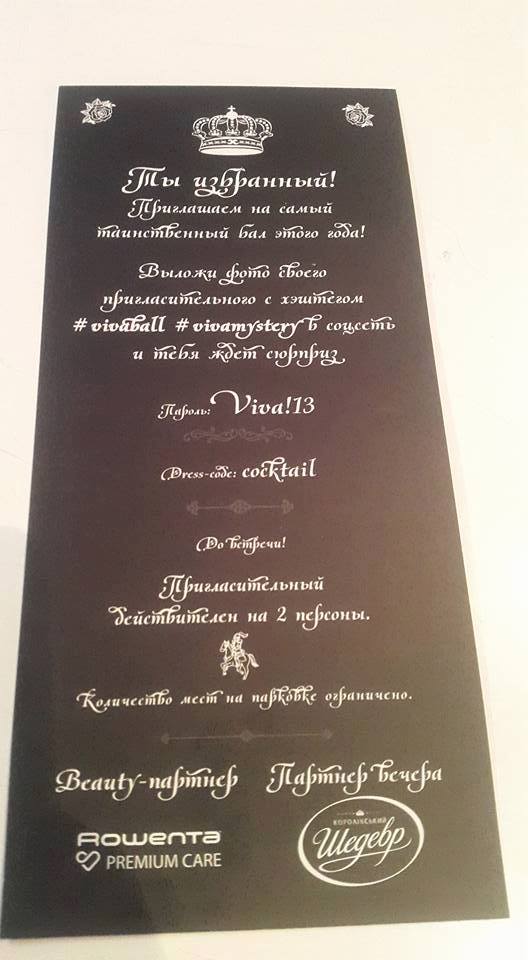 Ты избранный!
Приглашаем на самый
таинственный бал этого года!
Выложи фото своего
пригласительного с хэштегом
#vivaball #vivamystery в соцсеть
и тебя ждет сюрприз
Пароль: Viva!13
Dress-code: cocktail
До встречи!
Пригласительный
действителен на 2 персоны.
Количество мест на парковке ограничено.
Beauty-партнер Партнер вечера
Rowenta
PREMIUM CARE
КОРОЛІВСЬКИЙ
Шедевр